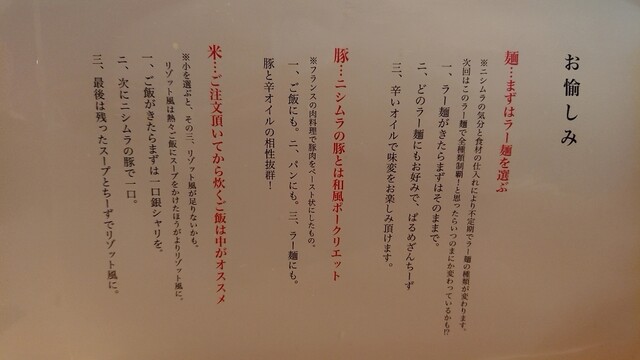 お愉しみ
麺…まずはラー麺を選ぶ
※ニシムラの気分と食材の仕入れにより不定期でラー麺の種類が変わります。
次回はこのラー麺で全種類制覇!と思ったらいつのまにか変わっているかも!?
一、ラー麺がきたらまずはそのままで。
二、どのラー麺にもお好みで、ぱるめざんちーず
三、辛いオイルで味変をお楽しみ頂けます。
豚…ニシムラの豚とは和風ポークリエット
※フランスの肉料理で豚肉をペースト状にしたもの。
一、ご飯にも。二、パンにも。三、ラー麺にも。
豚と辛オイルの相性抜群!
米…ご注文頂いてから炊くご飯は中がオススメ
※小を選ぶと、その三、リゾット風が足りないかも。
リゾット風は熱々ご飯にスープをかけたほうがよりリゾット風に。
一、ご飯がきたらまずは一口銀シャリを。
二、次にニシムラの豚で一口。
三、最後は残ったスープとちーずでリゾット風に。